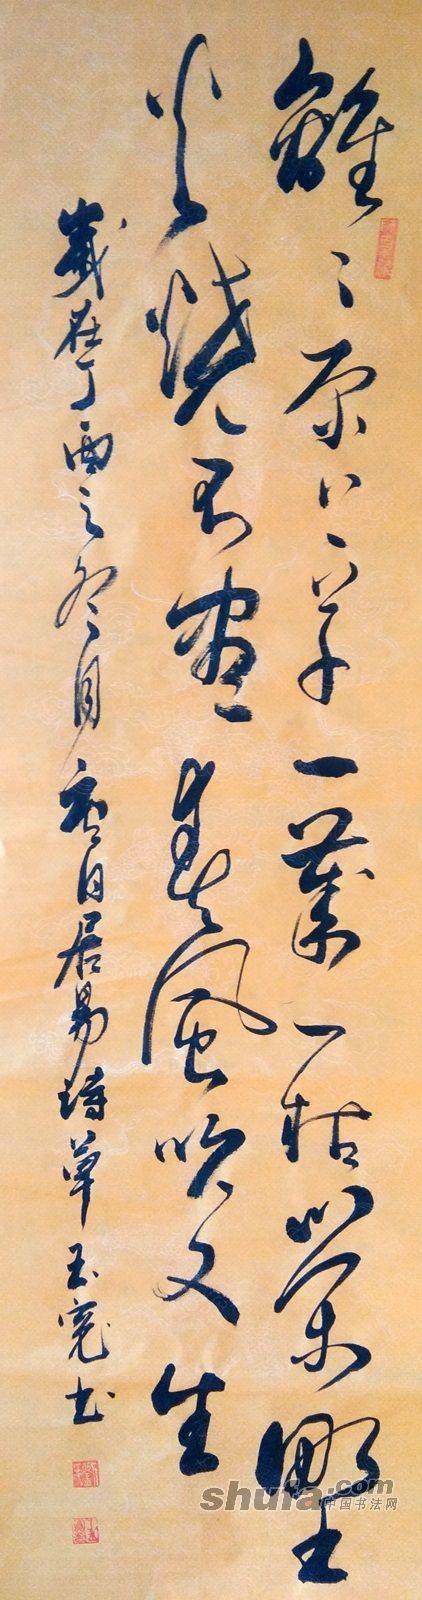 離々原上草一歲一枯榮野
火燒不盡春風吹又生
歲在丁酉之冬月白居易詩草玉寬书
shufa.com
中国书法网